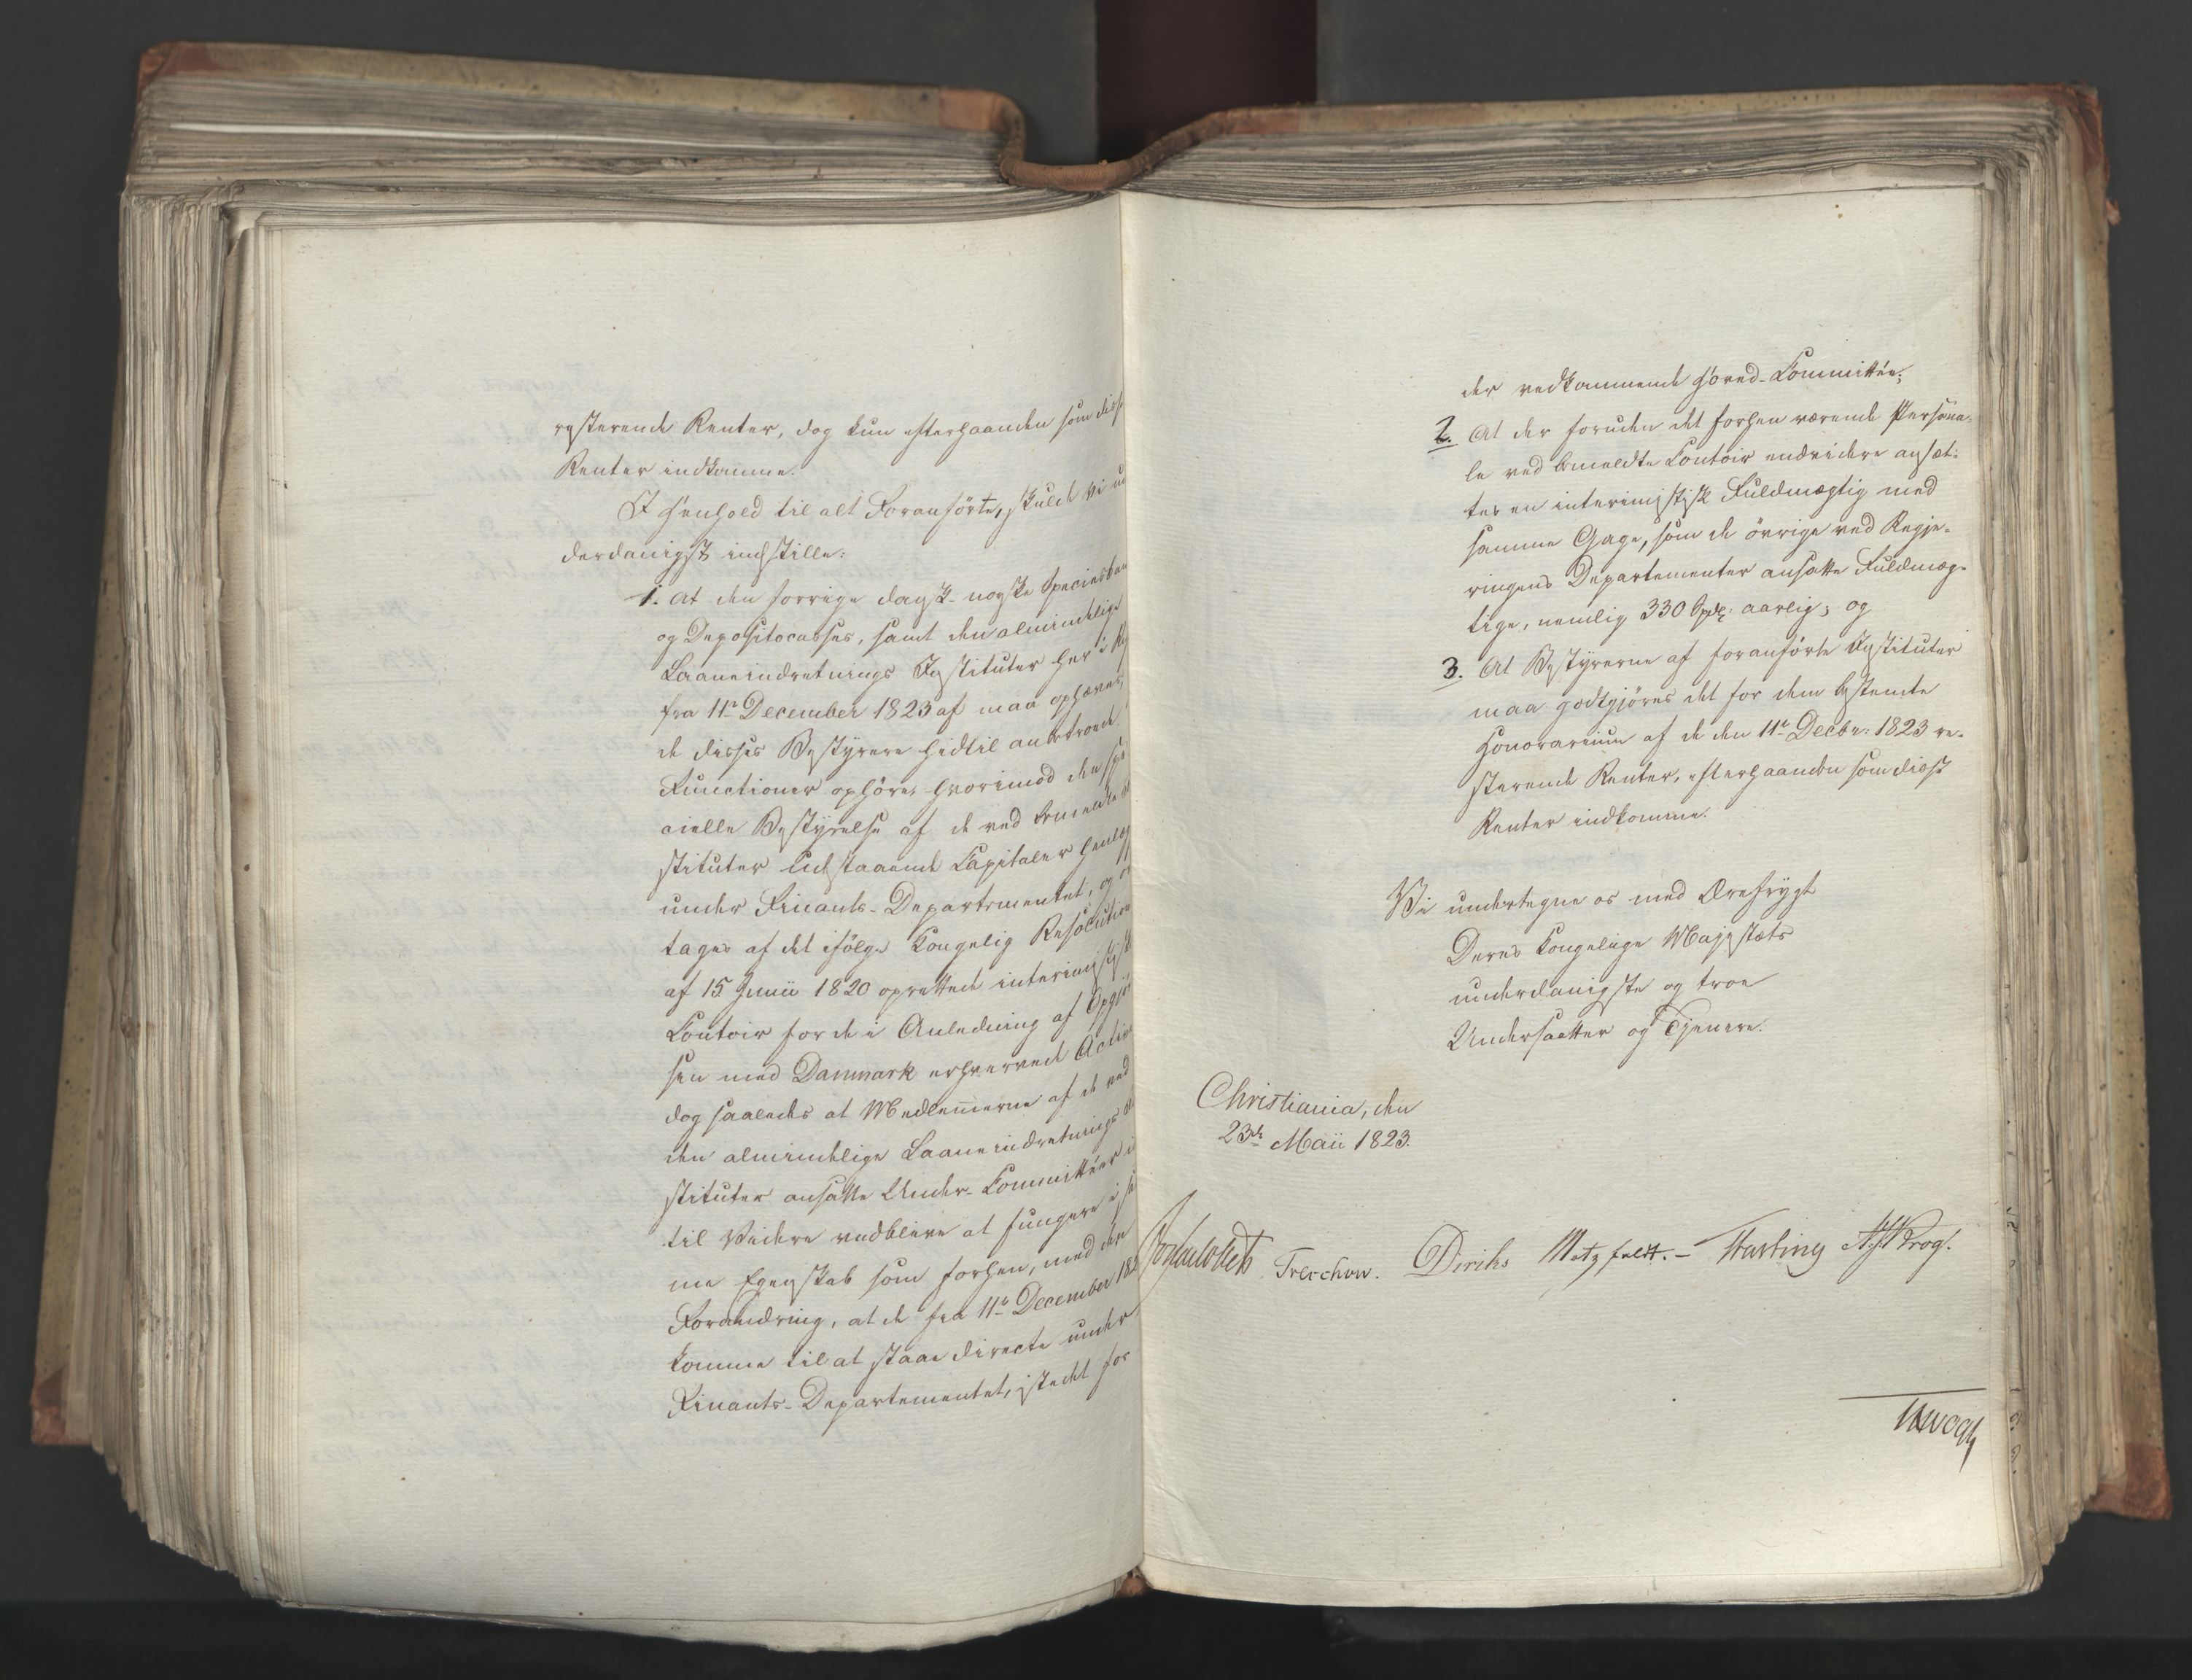 resterende Renter, dog kun efterhaanden som disse
Renter indkomme.
I Henhold til alt Foranførte, skulde Vi un
derdanigst indstille:
1. At den forrige dansk-norske Speciesban
og Depositocasses, samt den almindelige
Laaneindretnings Instituter her i
fra 11te December 1823 af maa ophæves,
de disses Bestyrere hidtil anbetroede
Functioner ophøre, hvorimod den spe
cielle Bestyrelse af de ved bemeldte
stituter udestaaende Capitaler henlæg
under Finants-Departementet, og
tages af det ifølge Kongelig Resolution
af 15 Junii 1820 oprettede interimistisk
Contoir for de i Anledning af Opgjør
sen med Danmark erhvervede Activa
dog saaledes at Medlemmerne af de ved
den almindelige Laaneindretnings
stituter ansatte Under-Committeer
til Videre vedblive at fungere i sa
me Egenskab som forhen, med den
Forandring, at de fra 11te December 182
komme til at staae directe under
Finants-Departementet, istedet for
der vedkommende Hoved-Committée;
2. At der foruden det forhen værende Persona-
le ved bemeldte Contoir endvidere ansæt-
tes en interimistisk Fuldmægtig med
samme Gage, som de øvrige ved Regje-
ringens Departementer ansatte Fuldmæg-
tige, nemlig 330 Spdlr aarlig; og
3. At Bestyrerne af foranførte Instituter
maa godtgjøres det for dem bestemte
Honorarium af de den 11te Decbr: 1823 re-
sterende Renter, efterhaanden som disse
Renter indkomme.
Vi undertegne os med Ærefrygt
Deres Kongelige Majestæts
underdanigste og troe
Undersaatter og Tjenere.
Christiania, den
23de Maii 1823.
Treschow. Diriks Motzfeldt. - Fasting